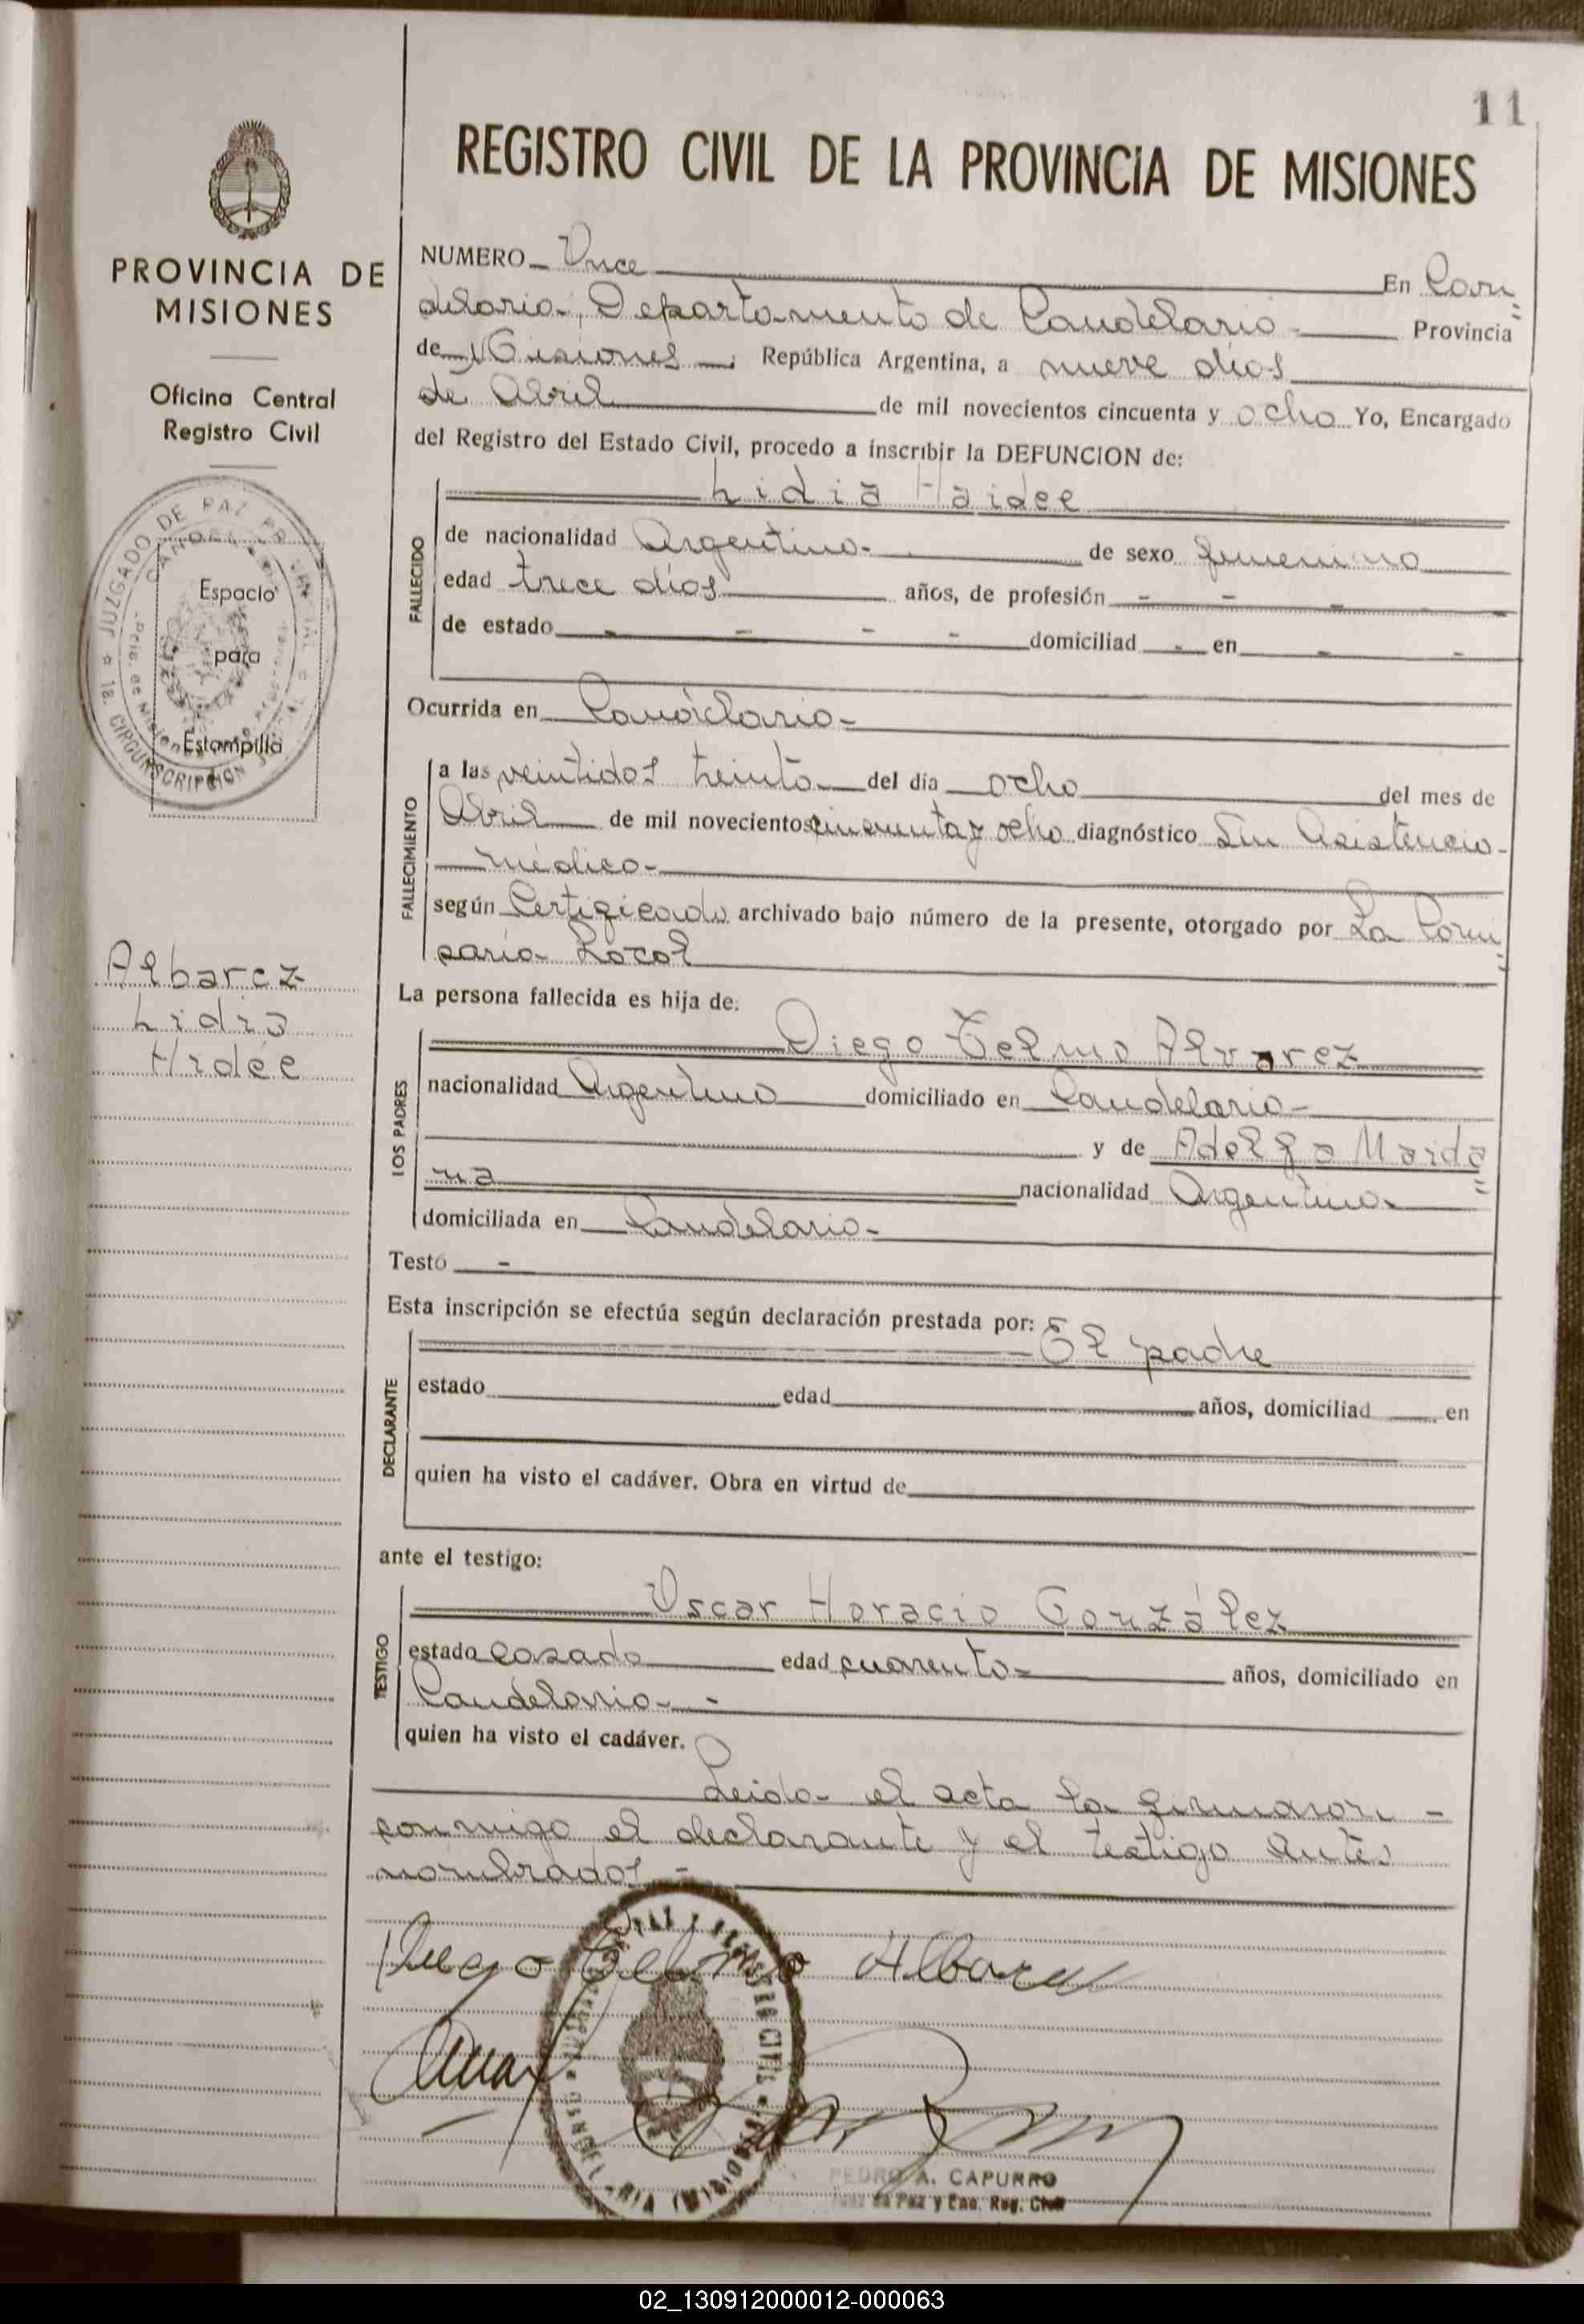 11
REGISTRO CIVIL DE LA PROVINCIA DE MISIONES
PROVINCIA DE
MISIONES
Oficina Central
Registro Civil
JUZGADO DE PAZ
CANDEL
Espacio
para
Estampilla
1a. CIRCUNSCRIPCION
Albarez
Lidia
Hidée
NUMERO Once En Can=
delaria, Departamento de Candelaria Provincia
de Misiones República Argentina, a nueve días
de Abril de mil novecientos cincuenta y ocho Yo, Encargado
del Registro del Estado Civil, procedo a inscribir la DEFUNCION de:
Lidia Haidee
FALLECIDO
de nacionalidad Argentina de sexo femenino
edad trece días años, de profesión - - - -
de estado - - - - domiciliad - en - -
Ocurrida en Candelaria
FALLECIMIENTO
a las veintidos treinta del día ocho del mes de
Abril de mil novecientos cincuenta y ocho diagnóstico Sin Asistencia
médica
según Certificado archivado bajo número de la presente, otorgado por La Comi=
saría Local
La persona fallecida es hija de:
Diego Telmo Alvarez
LOS PADRES
nacionalidad Argentino domiciliado en Candelaria
y de Adelfa Maida=
na nacionalidad Argentina
domiciliada en Candelaria
Testó -
Esta inscripción se efectúa según declaración prestada por:
El padre
DECLARANTE
estado edad años, domiciliad en
quien ha visto el cadáver. Obra en virtud de
ante el testigo:
Oscar Horacio González
TESTIGO
estado casado edad cuarenta años, domiciliado en
Candelaria -
quien ha visto el cadáver.
Leida el acta la firmaron -
conmigo el declarante y el testigo antes
nombrados -
Diego Telmo Albarez
REGISTRO CIVIL
PEDRO A. CAPURRO
Juez de Paz y Enc. Reg. Civil
02_130912000012-000063